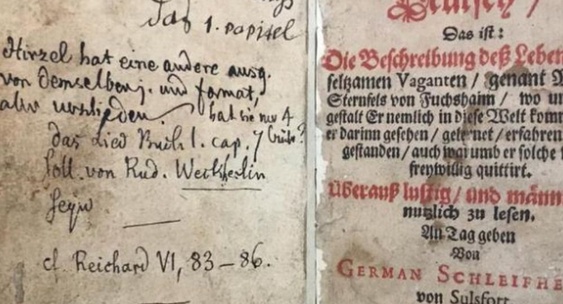 das 1. papitel
Hirzel hat eine andere ausg.
von demselben j. und format,
aber verschieden. hat sie nur 4
das Lied Buch 1. cap. 7 Büch?
soll von Rud. Weckherlin
seyn
cf. Reichard VI, 83–86.
Teutsch /
Das ist:
Die Beschreibung deß Leben
seltzamen Vaganten / genant M
Sternfels von Fuchshaim / wo un
gestalt Er nemlich in diese Welt komm
er darinn gesehen / gelernet / erfahren
gestanden / auch warumb er solche w
freywillig quittirt.
Überauß lustig / und männ
nutzlich zu lesen.
An Tag geben
Von
GERMAN SCHLEIFHE
von Sulsfort